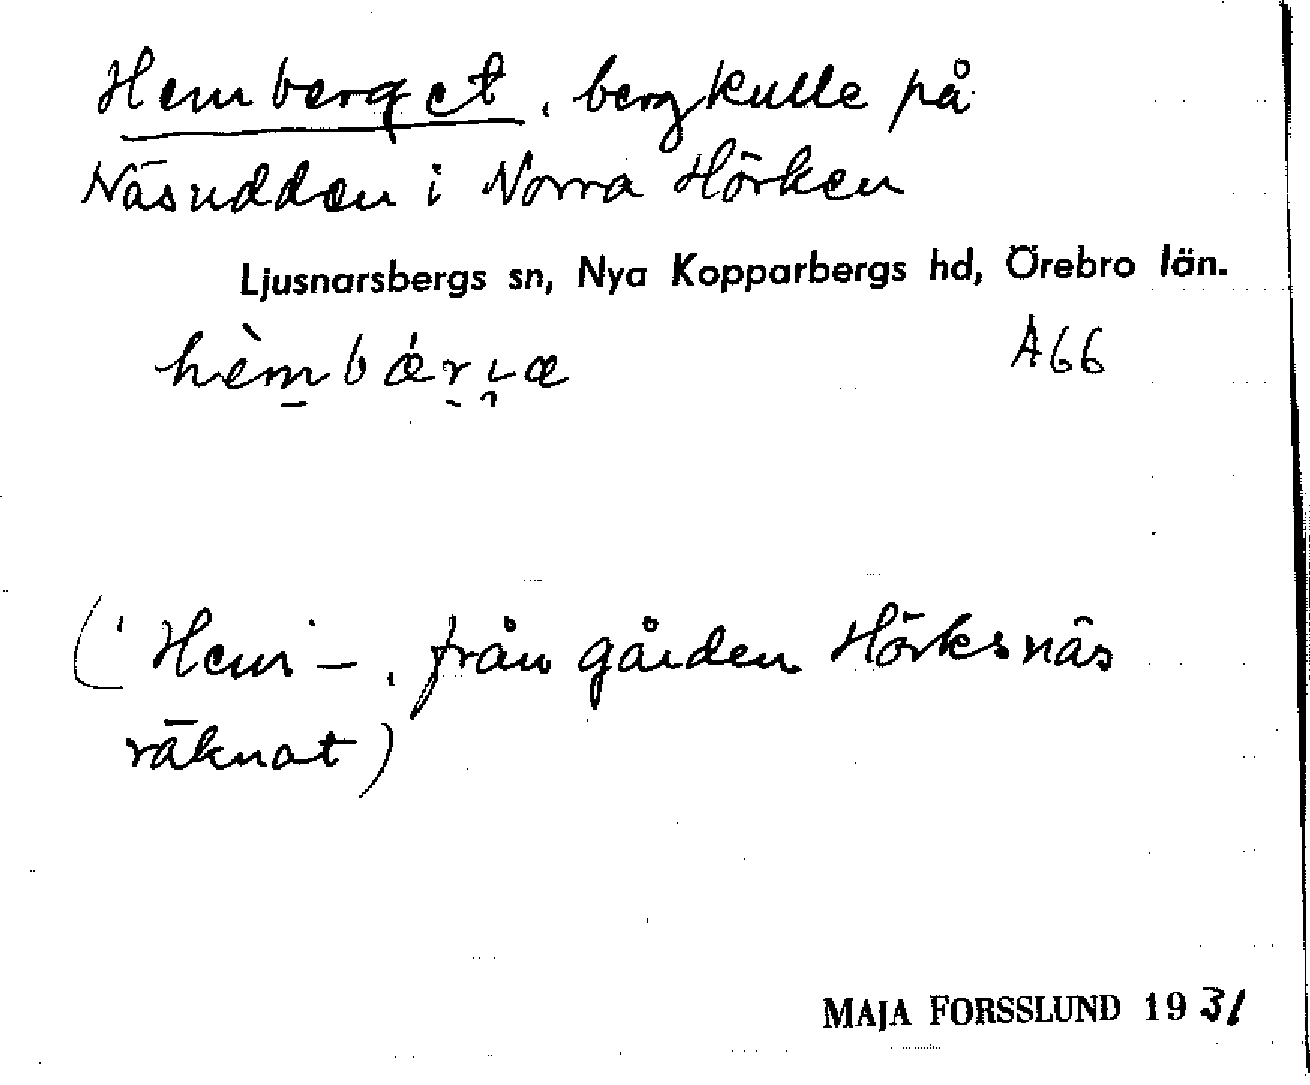 Hemberget, bergkulle på
Näsudden i Norra Hörken
Ljusnarsbergs sn, Nya Kopparbergs hd, Örebro län.
A66
('Hem'-, från gården Hörksnäs
räknat)
MAJA FORSSLUND 1931